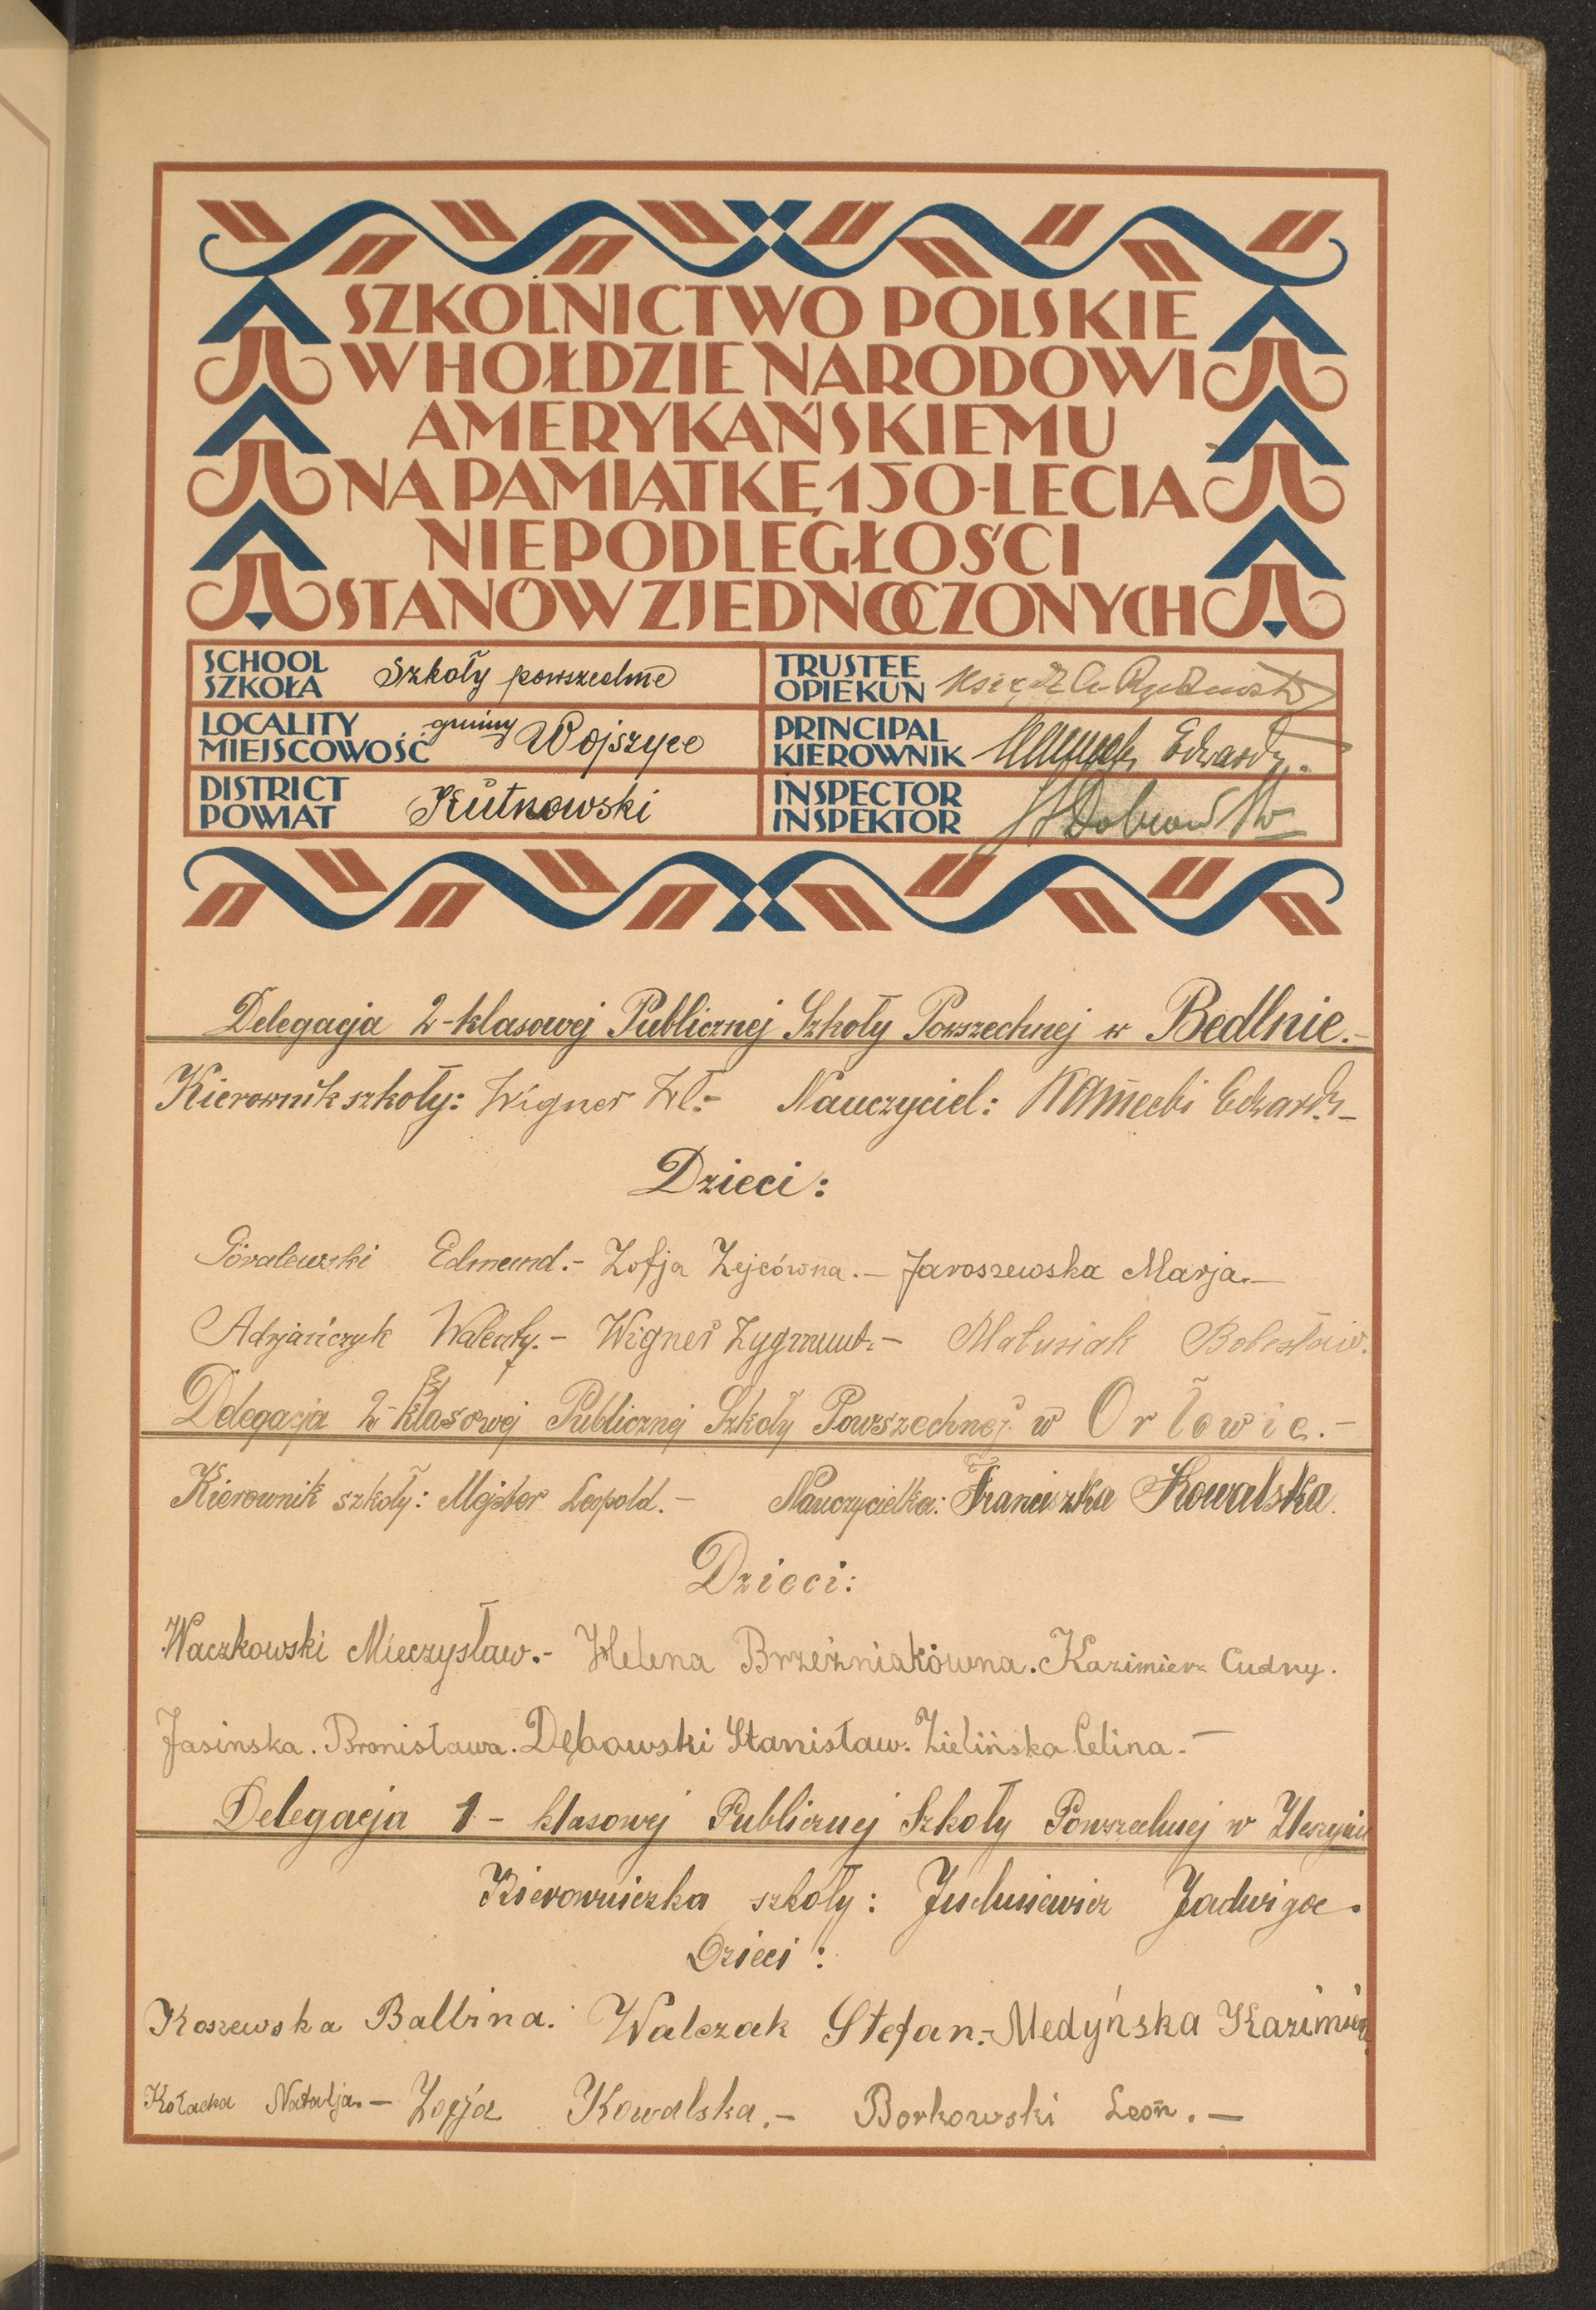 SZKOLNICTWO POLSKIE
W HOŁDZIE NARODOWI
AMERYKAŃSKIEMU
NA PAMIĄTKĘ 150-LECIA
NIEPODLEGŁOŚCI
STANÓW ZJEDNOCZONYCH
SCHOOL
SZKOŁA
Szkoły powszechne
TRUSTEE
OPIEKUN
Ksiądz
LOCALITY
MIEJSCOWOŚĆ
gminy Wojszyce
PRINCIPAL
KIEROWNIK
Edward
DISTRICT
POWIAT
Kutnowski
INSPECTOR
INSPEKTOR
Delegacja 2-klasowej Publicznej Szkoły Powszechnej w Bedlnie.-
Kierownik szkoły: Wigner Wł.- Nauczyciel: Kamecki Edward.-
Dzieci:
Góralewski Edmund.- Zofja Zejcówna.- Jaroszewska Marja.-
Adrjańczyk Walenty.- Wigner Zygmunt.- Matusiak Bolesław.
Delegacja 2-klasowej Publicznej Szkoły Powszechnej w Orłowie.-
Kierownik szkoły: Majster Leopold.- Nauczycielka: Franciszka Kowalska.
Dzieci:
Waczkowski Mieczysław.- Helena Brzeźniakówna. Kazimierz Cudny.
Jasinska. Bronisława. Dębowski Stanisław. Zielińska Celina.-
Delegacja 1-klasowej Publicznej Szkoły Powszechnej w
Kierowniczka szkoły: Juchniewicz Jadwiga.
Dzieci:
Koszewska Balbina. Walczak Stefan.- Medyńska Kazimiera
Kołacka Natalja.- Zofja Kowalska.- Borkowski Leon.-